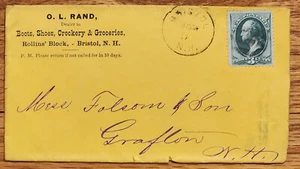 O. L. RAND,
Dealer in
Boots, Shoes, Crockery & Groceries,
Rollins' Block, - Bristol, N. H.
P. M. Please return if not called for in 10 days.
N.H.
Mess Folsom & Son
Grafton
N.H.